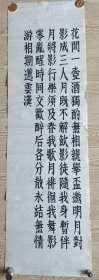 花間一壺酒獨酌無相親舉杯邀明月對
影成三人月既不解飲影徒隨我身暫伴
月將影行樂須及春我歌月徘徊我舞影
零亂醒時同交歡醉後各分散永結無情
游相期邈雲漢